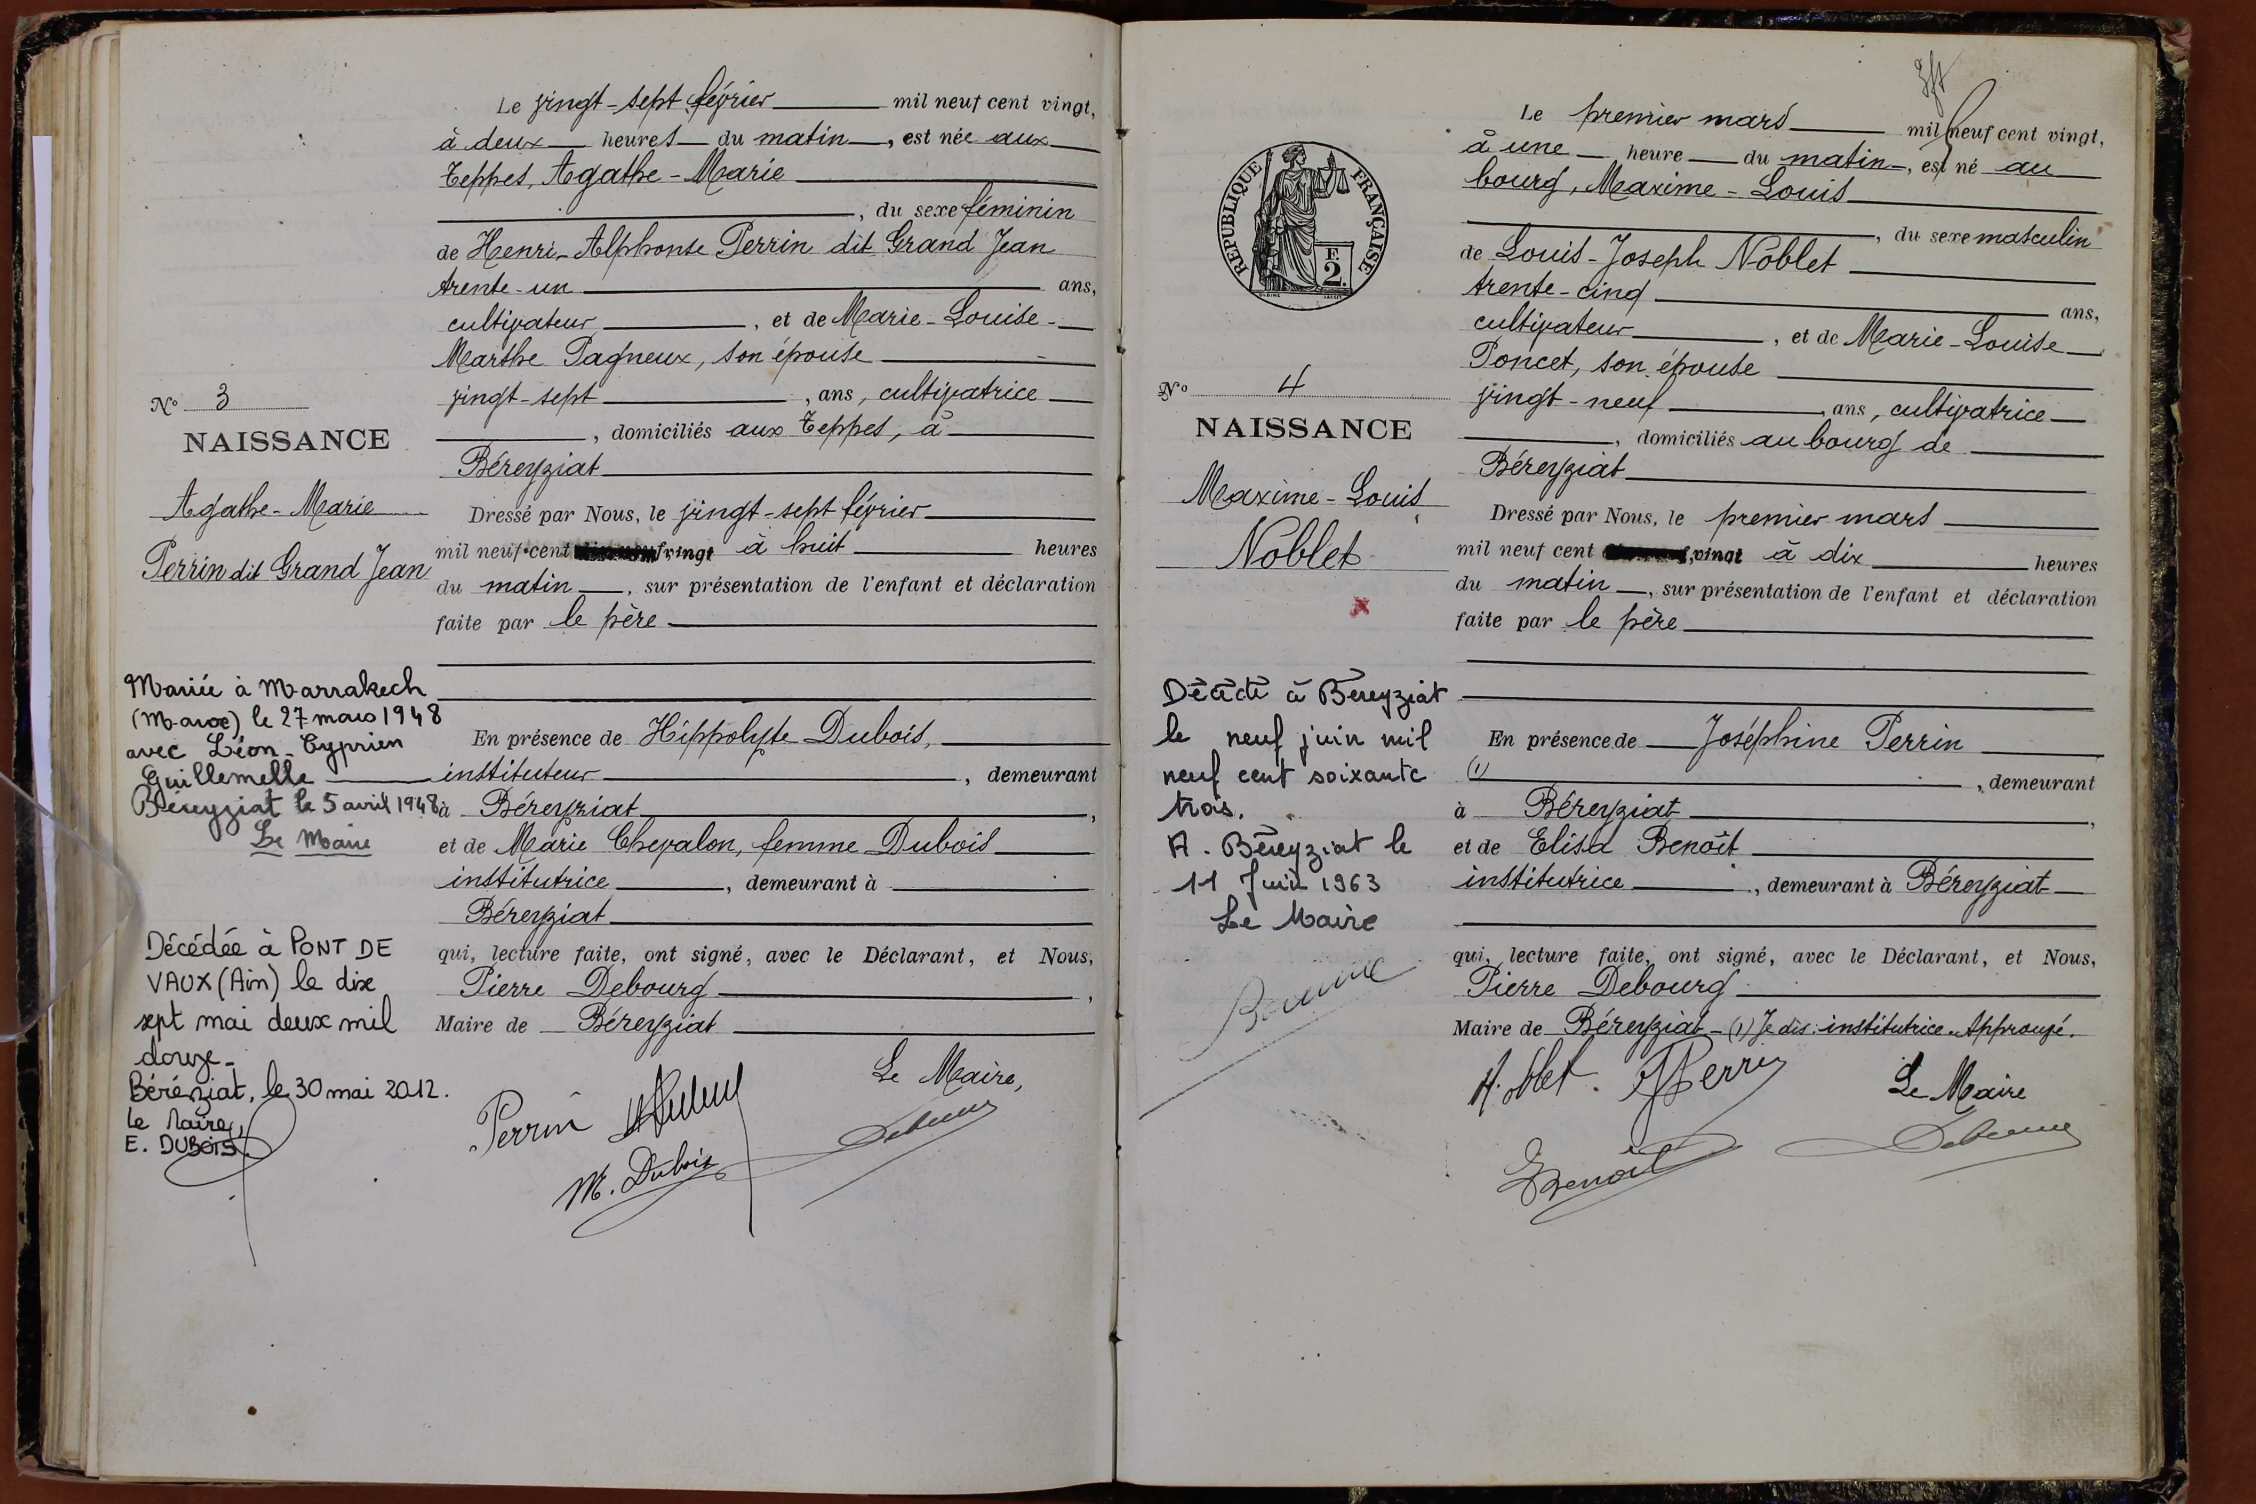 Le vingt-sept février mil neuf cent vingt,
à deux heures du matin, est née aux
Teppes, Agathe-Marie
, du sexe féminin
de Henri-Alphonse Perrin dit Grand Jean
trente-un ans,
cultivateur, et de Marie-Louise-
Marthe Pagneux, son épouse
vingt-sept, ans, cultivatrice
, domiciliés aux Teppes, à
Béreyziat
Dressé par Nous, le vingt-sept février
mil neuf cent vingt à huit heures
du matin, sur présentation de l'enfant et déclaration
faite par le père
En présence de Hippolyte Dubois,
instituteur, demeurant
à Béreyziat,
et de Marie Chevalon, femme Dubois
institutrice, demeurant à
Béreyziat
qui, lecture faite, ont signé, avec le Déclarant, et Nous,
Pierre Debourg,
Maire de Béreyziat
Le Maire,
Perrin
M. Dubois
No 3
NAISSANCE
Agathe-Marie
Perrin dit Grand Jean
Mariée à Marrakech
(Maroc) le 27 mars 1948
avec Léon-Cyprien
Guillemelle
Béreyziat le 5 avril 1948
Le Maire
Décédée à PONT DE
VAUX (Ain) le dix
sept mai deux mil
douze-
Béréziat, le 30 mai 2012.
Le Maire,
E. DUBOIS
Le premier mars mil neuf cent vingt,
à une heure du matin, est né au
bourg, Maxime-Louis
, du sexe masculin
de Louis-Joseph Noblet
trente-cinq ans,
cultivateur, et de Marie-Louise
Poncet, son épouse
vingt-neuf ans, cultivatrice
, domiciliés au bourg de
Béreyziat
Dressé par Nous, le premier mars
mil neuf cent vingt à dix heures
du matin, sur présentation de l'enfant et déclaration
faite par le père
En présence de Joséphine Perrin
(1), demeurant
à Béreyziat,
et de Elisa Benoît
institutrice, demeurant à Béreyziat
qui, lecture faite, ont signé, avec le Déclarant, et Nous,
Pierre Debourg
Maire de Béreyziat-(1) Je dis: institutrice. Approuvé.
Le Maire
Perrin
EBenoît
RÉPUBLIQUE FRANÇAISE
F.
2.
No 4
NAISSANCE
Maxime-Louis
Noblet
x
Décédé à Béreyziat
le neuf juin mil
neuf cent soixante
trois.
A. Béreyziat le
11 Juin 1963
Le Maire